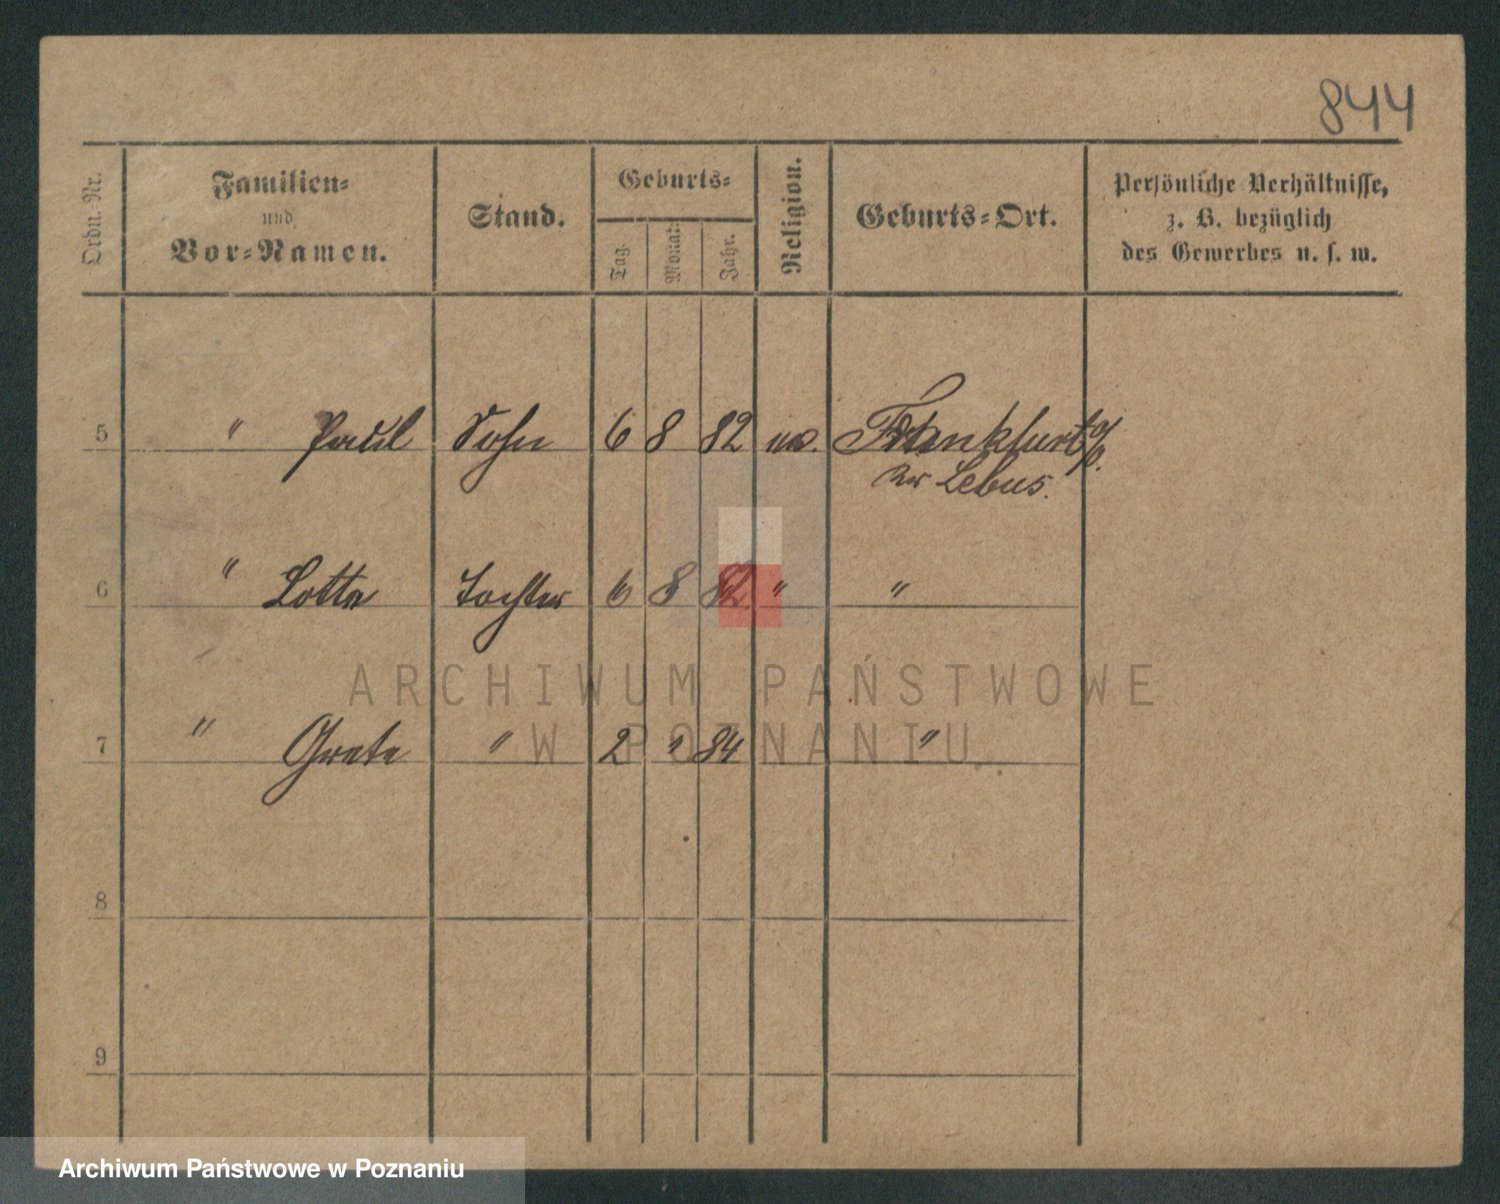 844
Ordn. Nr.
Familien=
und
Vor=Namen.
Stand.
Geburts=
Tag.
Monat.
Jahr.
Religion.
Geburts=Ort.
Persönliche Verhältnisse,
z. B. bezüglich
des Gewerbes u. s. w.
5 " Paul Sohn 6 8 82 ev. Frankfurt a/O.
Kr Lebus.
6 " Lotte Tochter 6 8 82 " "
ARCHIWUM PAŃSTWOWE
W POZNANIU
7 " Grete " 2 " 84 "
8
9
Archiwum Państwowe w Poznaniu